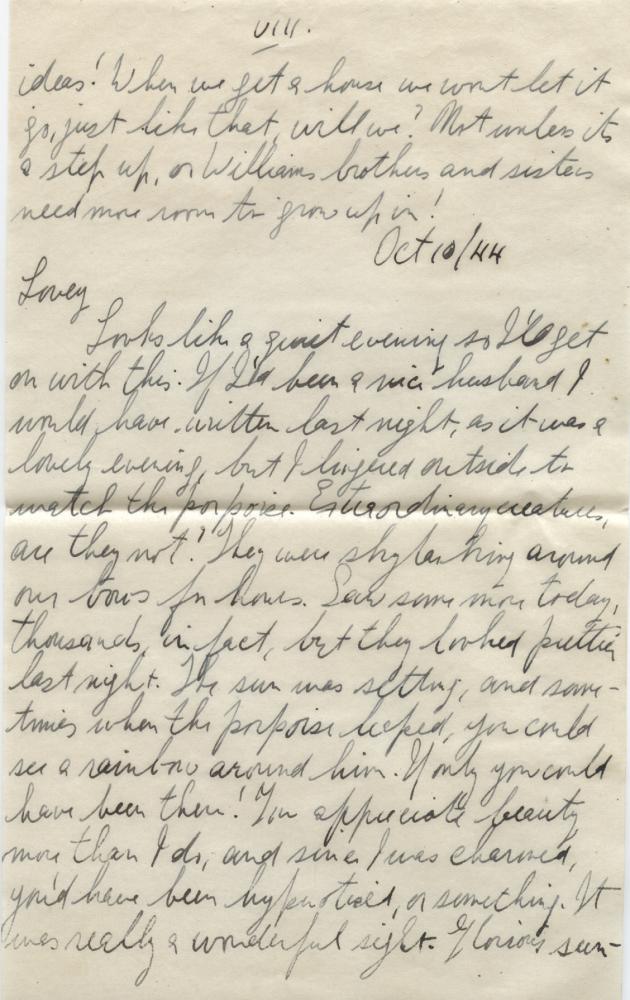 VIII.
ideas! When we get a house we wont let it
go, just like that, will we? Not unless its
a step up, or Williams brothers and sisters
need more room to grow up in!
Oct 10/44
Lovey
Looks like a quiet evening so I'll get
on with this. If I'd been a nice husband I
would have written last night, as it was a
lovely evening, but I lingered outside to
watch the porpoise. Extraordinary creatures,
are they not? They were skylarking around
our bows for hours. Saw some more today,
thousands, in fact, but they looked prettier
last night. The sun was setting, and some-
times when the porpoise leeped, you could
see a rainbow around him. If only you could
have been there! You appreciate beauty
more than I do, and since I was charmed,
you'd have been hypnotized, or something. It
was really a wonderful sight. Glorious sun-